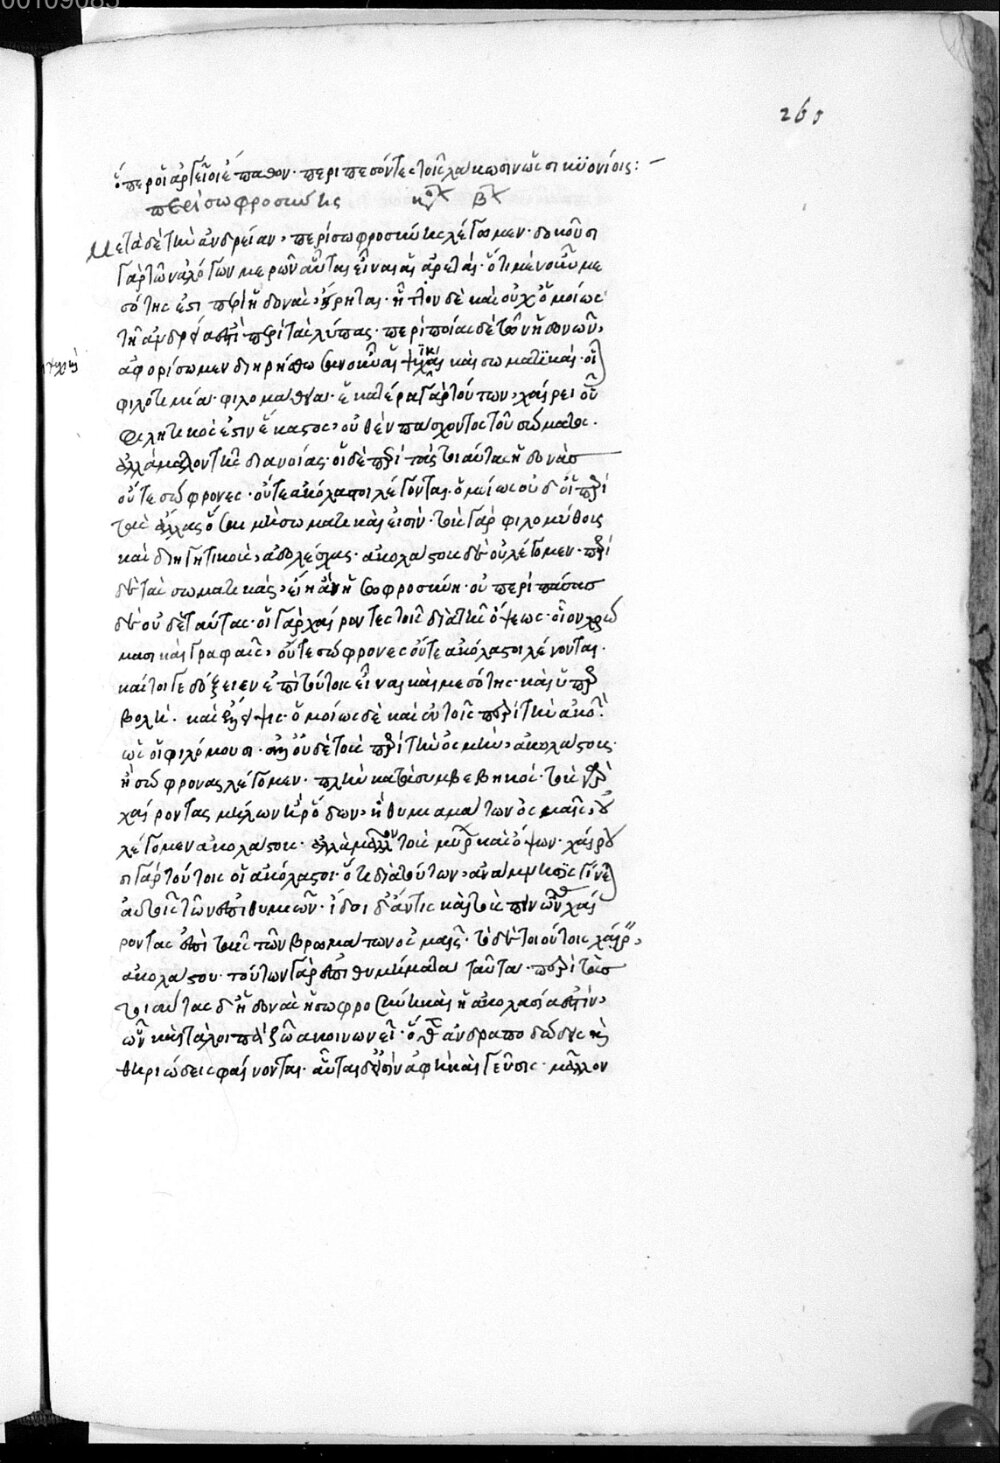 00109085
265
ὅπερ οἱ ἀργεῖοι ἔπαθον· περιπεσόντες τοῖς λάκωσιν ὡς σικυωνίοις: –
περὶ σωφροσύνης β
Μετὰ δὲ τὴν ἀνδρείαν, περὶ σωφροσύνης λέγωμεν· δοκοῦσι
γὰρ τῶν ἀλόγων μερῶν αὗται εἶναι αἱ ἀρεταί· ὅτι μὲν οὖν με
σότης ἐστὶ περὶ ἡδονὰς, εἴρηται· ἧττον δὲ καὶ οὐχ ὁμοίως
τῇ ἀνδρείᾳ ἐστὶ περὶ τὰς λύπας· περὶ ποίας δὲ τῶν ἡδονῶν,
ἀφορίσωμεν διῃρήσθωσαν οὖν αἱ ψυχικαὶ καὶ σωματικαί· οἷ
φιλοτιμία· φιλομάθεια· ἑκατέρα γὰρ τούτων, χαίρει οὗ
φιλητικός ἐστιν ἕκαστος, οὐθὲν πάσχοντος τοῦ σώματος·
ἀλλὰ μᾶλλον τῆς διανοίας· οἱ δὲ περὶ τὰς τοιαύτας ἡδονὰς
οὔτε σώφρονες· οὔτε ἀκόλαστοι λέγονται. ὁμοίως οὐδ' οἱ περὶ
τὰς ἄλλας ὅσαι μὴ σωματικαί εἰσιν· τοὺς γὰρ φιλομύθους
καὶ διηγητικοὺς, ἀδολέσχας· ἀκολάστους δ' οὐ λέγομεν· περὶ
δὲ τὰς σωματικὰς, εἴη ἂν ἡ σωφροσύνη· οὐ περὶ πάσας
δὲ οὐδὲ ταύτας· οἱ γὰρ χαίροντες τοῖς διὰ τῆς ὄψεως· οἷον χρώ
μασι καὶ γραφαῖς, οὔτε σώφρονες οὔτε ἀκόλαστοι λέγονται·
καίτοι γε δόξειεν ἐπὶ τούτοις εἶναι καὶ μεσότης· καὶ ὑπερ
βολή· καὶ ἔλλειψις· ὁμοίως δὲ καὶ ἐν τοῖς περὶ τὴν ἀκοήν
οὐδὲ τοὺς περὶ τὴν ὀσμὴν, ἀκολάστους
ἢ σώφρονας λέγομεν· πλὴν κατὰ συμβεβηκός· τοὺς γὰρ
χαίροντας μήλων ἢ ῥόδων, ἢ θυμιαμάτων ὀσμαῖς, οὐ
λέγομεν ἀκολάστους· ἀλλὰ μᾶλλον τοὺς μύρων καὶ ὄψων· χαίρου
σι γὰρ τούτοις οἱ ἀκόλαστοι· ὅτι διὰ τούτων, ἀνάμνησις γίνεται
αὐτοῖς τῶν ἐπιθυμιῶν· ἴδοι δ' ἄν τις καὶ τοὺς πεινῶντας χαί
ροντας ἐπὶ ταῖς τῶν βρωμάτων ὀσμαῖς· τὸ δὲ τοιούτοις χαίρειν,
ἀκολάστου· τούτων γὰρ ἐπιθυμήματα ταῦτα· περὶ τὰς
τοιαύτας δ' ἡδονὰς ἡ σωφροσύνη καὶ ἡ ἀκολασία ἐστίν,
ὧν καὶ τὰ λοιπὰ ζῷα κοινωνεῖ· ὅθεν ἀνδραποδώδεις καὶ
θηριώδεις φαίνονται· αὗται δ' εἰσὶν ἁφὴ καὶ γεῦσις· μᾶλλον